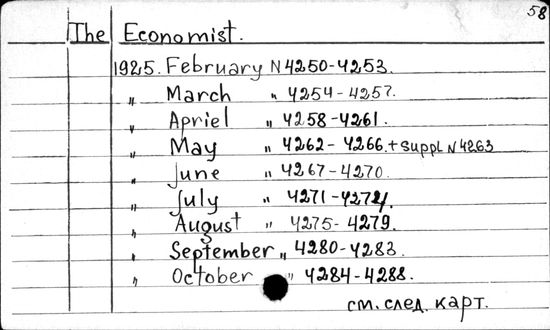 58
The Economist.
1925. February N 4250-4253.
„ March „ 4254-4257.
„ Apriel „ 4258-4261.
„ May „ 4262-4266. + Suppl N 4263
„ June „ 4267-4270.
„ July „ 4271-4274.
„ August „ 4275-4279.
„ September „ 4280-4283.
„ October „ 4284-4288.
см. след. карт.